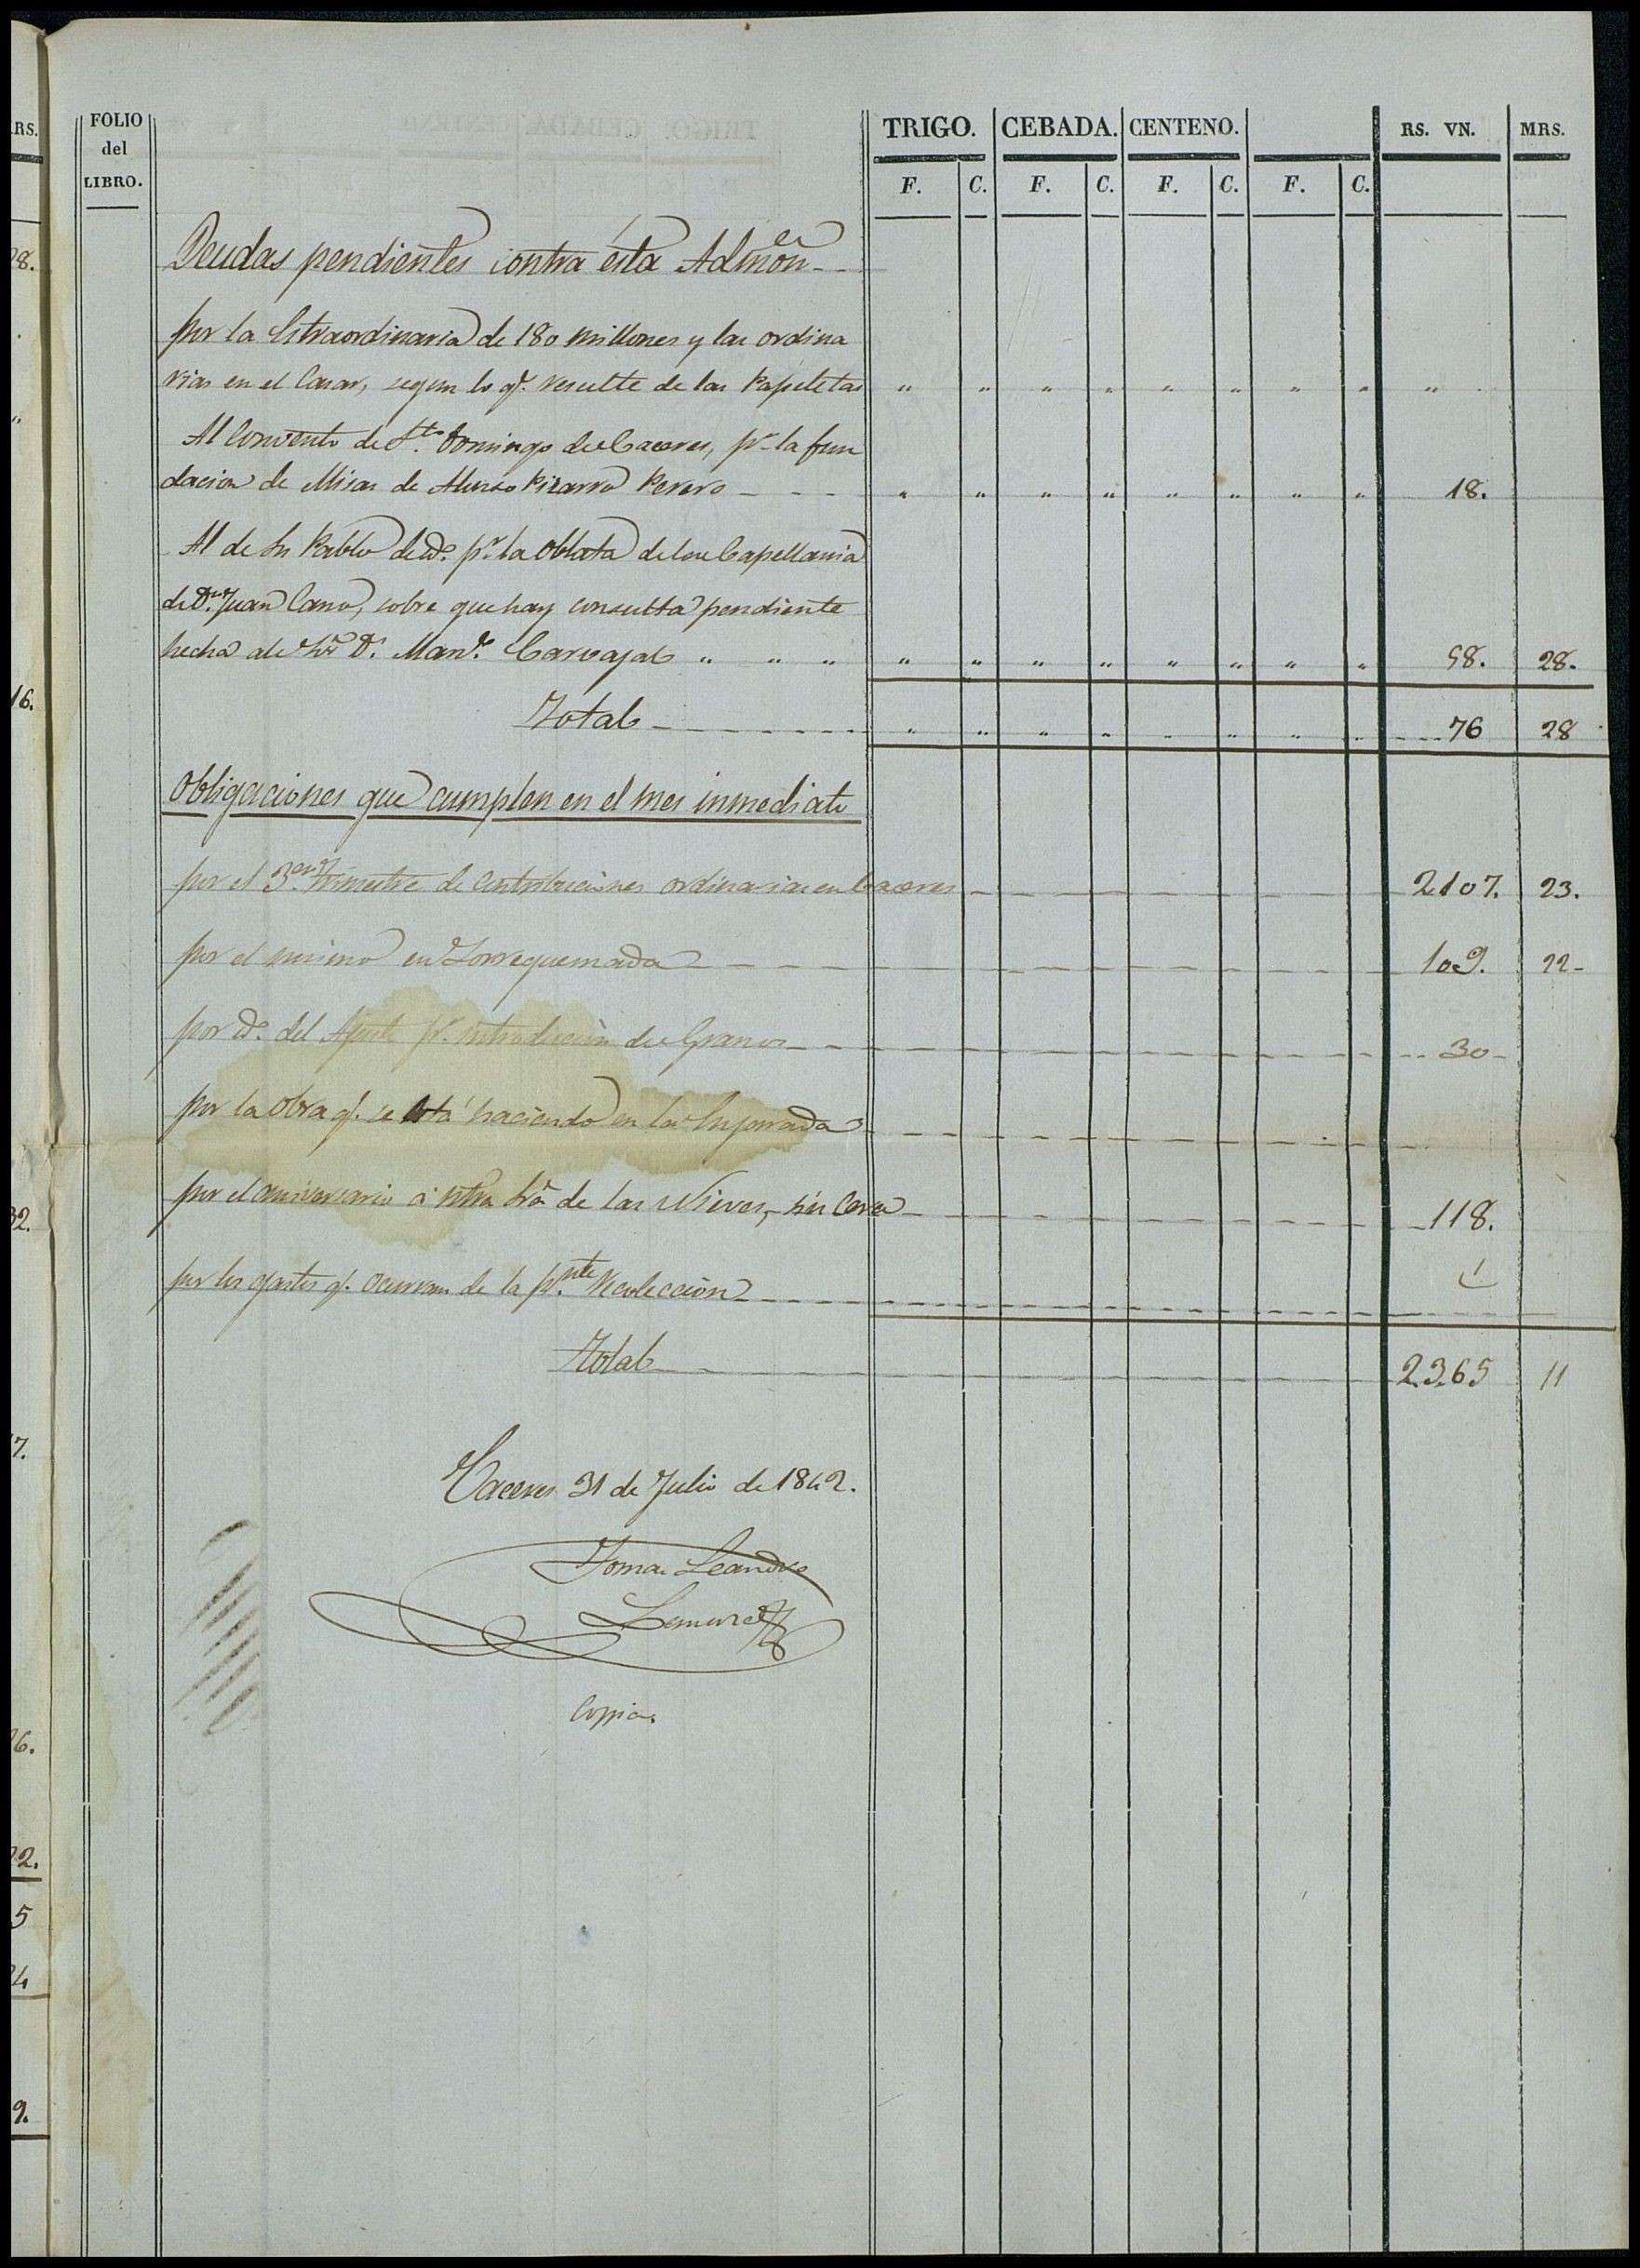 RS.
FOLIO
del
LIBRO.
TRIGO. CEBADA. CENTENO. RS. VN. MRS.
F. C. F. C. F. C. F. C.
28.
Deudas pendientes contra ésta Admon
por la Estraordinaria de 180 millones y las ordina
rias en el Casar, segun lo q.e resulte de las Papeletas " " " " " " " " "
Al Convento de Sto. Domingo de Caceres, pr. la fun
dacion de Misas de Alonso Pizarro Perero " " " " " " " " 18.
Al de Sn Pablo de id. pr. la oblata de la Capellania
de Dn. Juan Cano, sobre que hay consulta pendiente
hecha al Sor. D. Manl. Carvajal " " " " " " " " " " " 58. 28.
16.
Total " " " " " " " " 76 28
Obligaciones que cumplen en el mes inmediato
por el 3er. trimestre de Contribuciones ordinarias en Caceres 2107. 23.
por el mismo en Torrequemada 109. 22
por id. del Ajuste pr. introduccion de Granos 30
por la obra q. se está haciendo en la Enjarada
32.
por el aniversario á ntra Sra de las Nieves, sin Cera 118.
por los gastos q. ocurran de la pnte. Recoleccion
Total 2365 11
7.
Caceres 31 de Julio de 1842.
Tomas Leandro
Copia.
26.
22.
5
24
9.